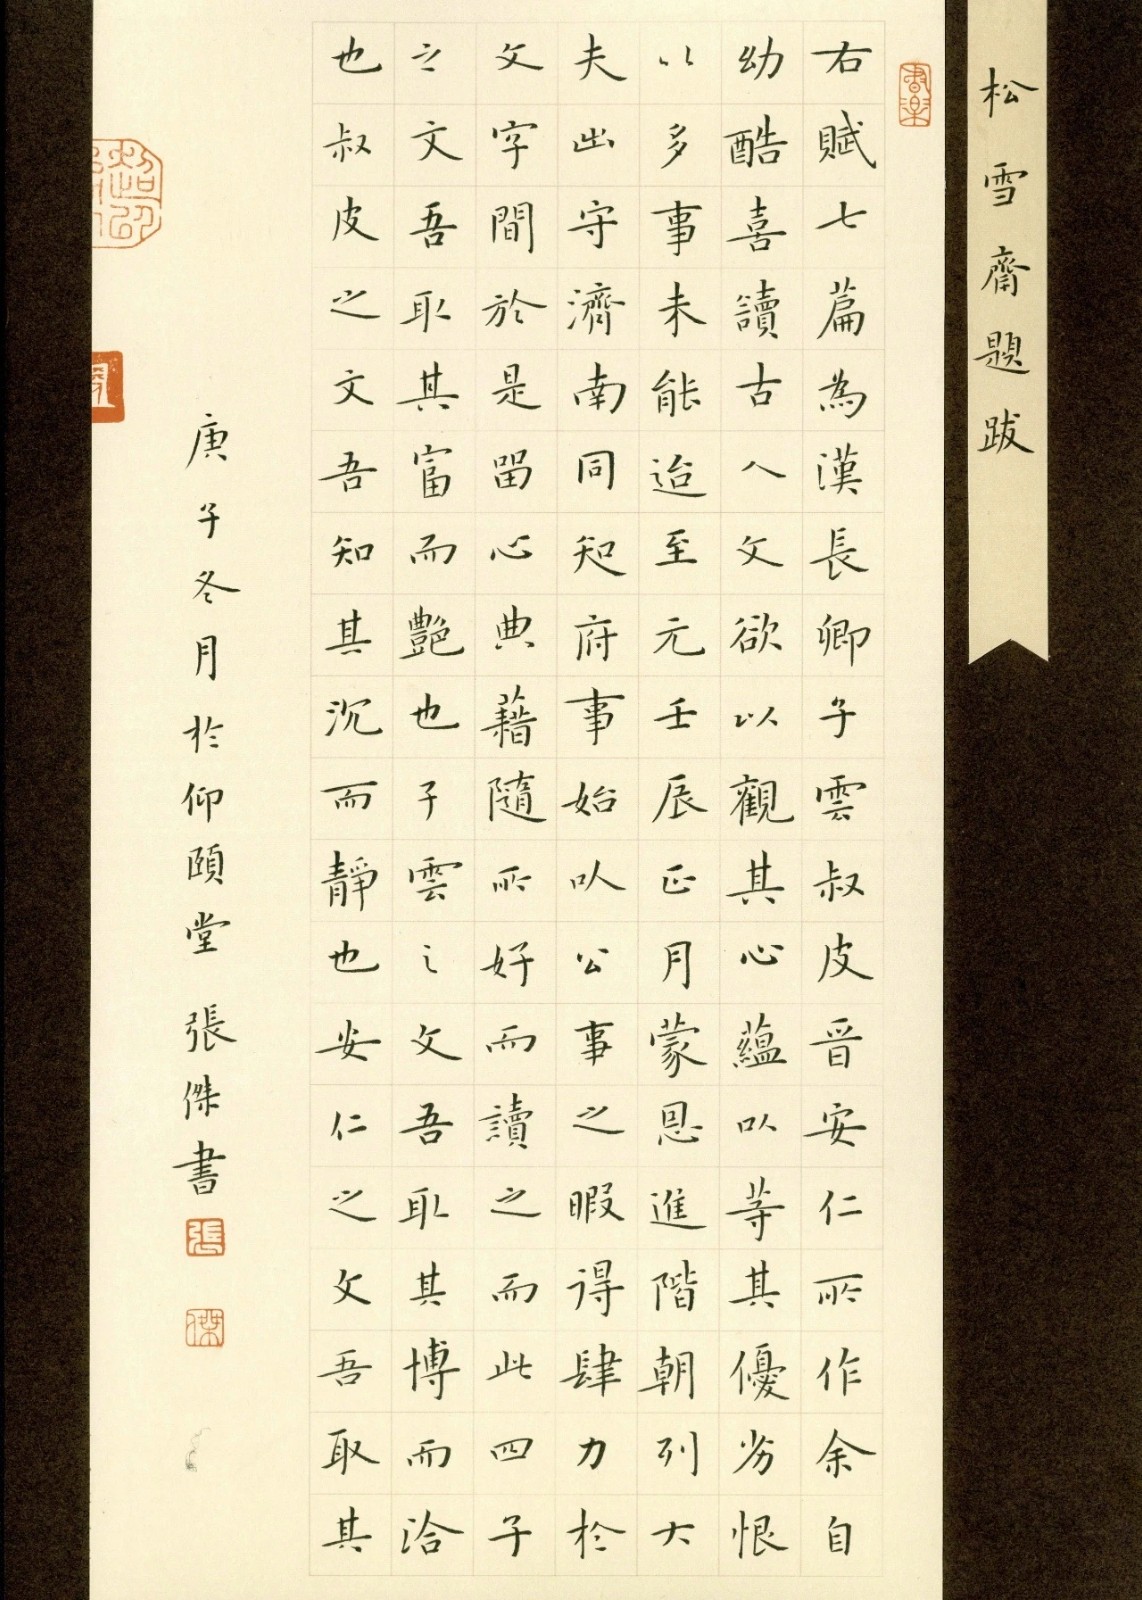 松雪齋題跋
右賦七篇為漢長卿子雲叔皮晋安仁所作余自
幼酷喜讀古人文欲以觀其心蘊以等其優劣恨
以多事未能迨至元壬辰正月蒙恩進階朝列大
夫出守濟南同知府事始以公事之暇得肆力於
文字間於是留心典藉隨所好而讀之而此四子
之文吾取其富而艷也子雲之文吾取其博而洽
也叔皮之文吾知其沉而靜也安仁之文吾取其
庚子冬月於仰頤堂 張傑書
張
傑